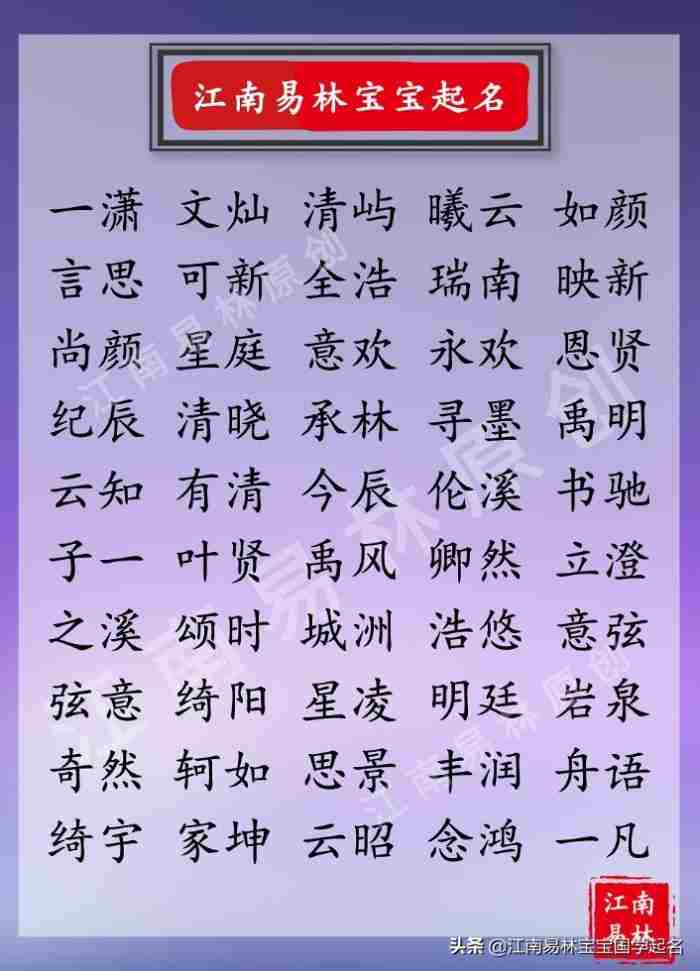 江南易林宝宝起名
一潇 文灿 清屿 曦云 如颜
言思 可新 全浩 瑞南 映新
尚颜 星庭 意欢 永欢 恩贤
纪辰 清晓 承林 寻墨 禹明
云知 有清 今辰 伦溪 书驰
子一 叶贤 禹风 卿然 立澄
之溪 颂时 城洲 浩悠 意弦
弦意 绮阳 星凌 明廷 岩泉
奇然 轲如 思景 丰润 舟语
绮宇 家坤 云昭 念鸿 一凡
江南易林原创
江南易林原创
江南易林原创
江南
易林
头条 @江南易林宝宝国学起名